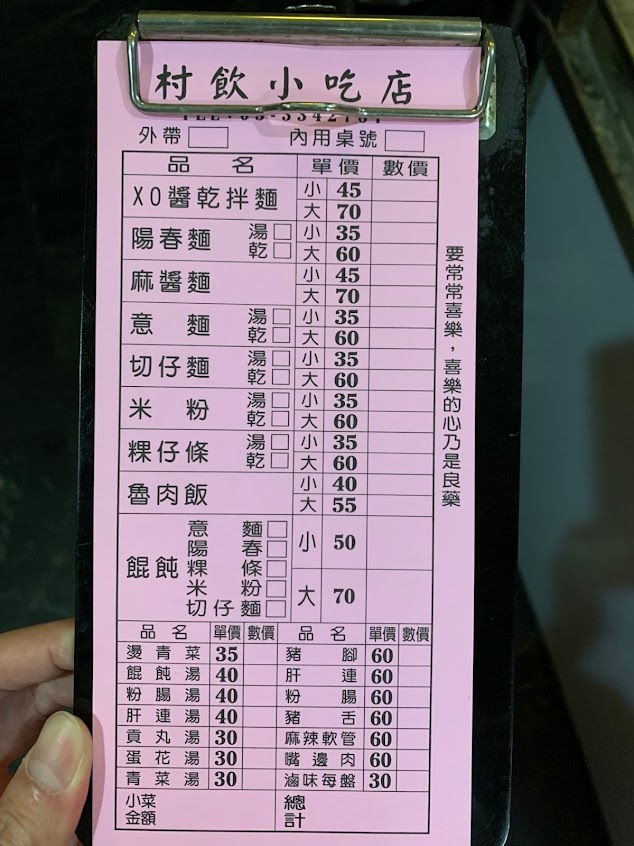 村飲小吃店
外帶 內用桌號
品名 單價 數價
XO醬乾拌麵 小 45
大 70
陽春麵 湯 小 35
乾 大 60
麻醬麵 小 45
大 70
意麵 湯 小 35
乾 大 60
切仔麵 湯 小 35
乾 大 60
米粉 湯 小 35
乾 大 60
粿仔條 湯 小 35
乾 大 60
魯肉飯 小 40
大 55
餛飩 小 50
大 70
意麵
陽春
粿條
米粉
切仔麵
品名 單價 數價 品名 單價 數價
燙青菜 35 豬腳 60
餛飩湯 40 肝連 60
粉腸湯 40 粉腸 60
肝連湯 40 豬舌 60
貢丸湯 30 麻辣軟管 60
蛋花湯 30 嘴邊肉 60
青菜湯 30 滷味每盤 30
小菜金額 總計
要常常喜樂，喜樂的心乃是良藥